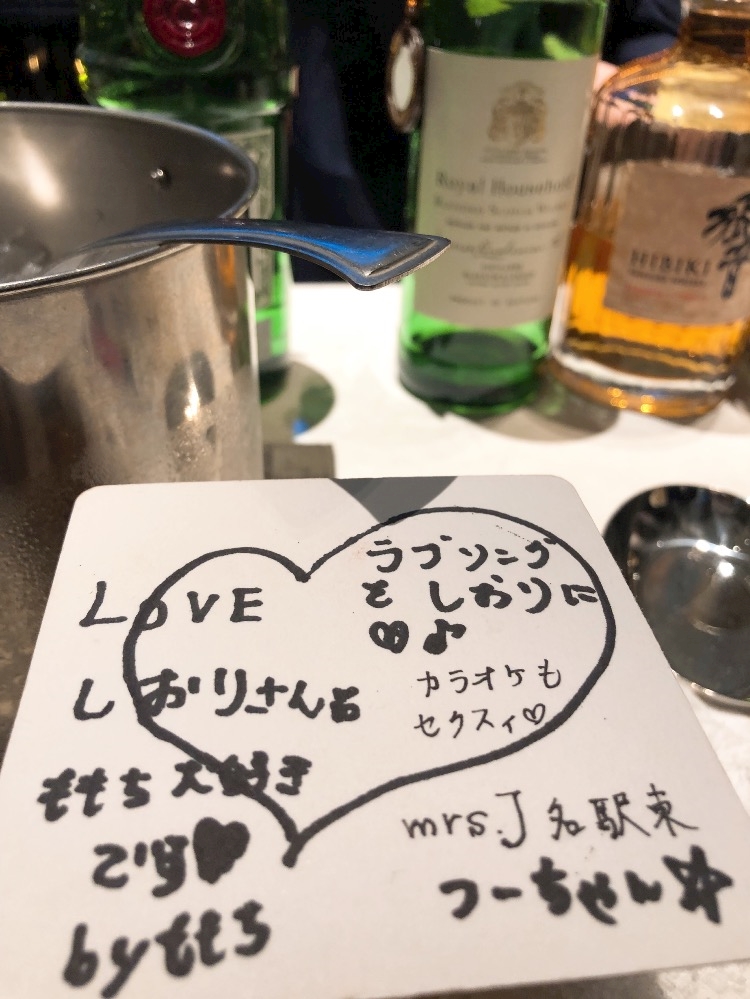 Royal Household
HIBIKI
響
LOVE
しおりさんを
ももち大好き
です♥
byももち
ラブソング
を しおりに
♡♪
カラオケも
セクスィ♡
mrs.J 名駅東
つーちゃん☆